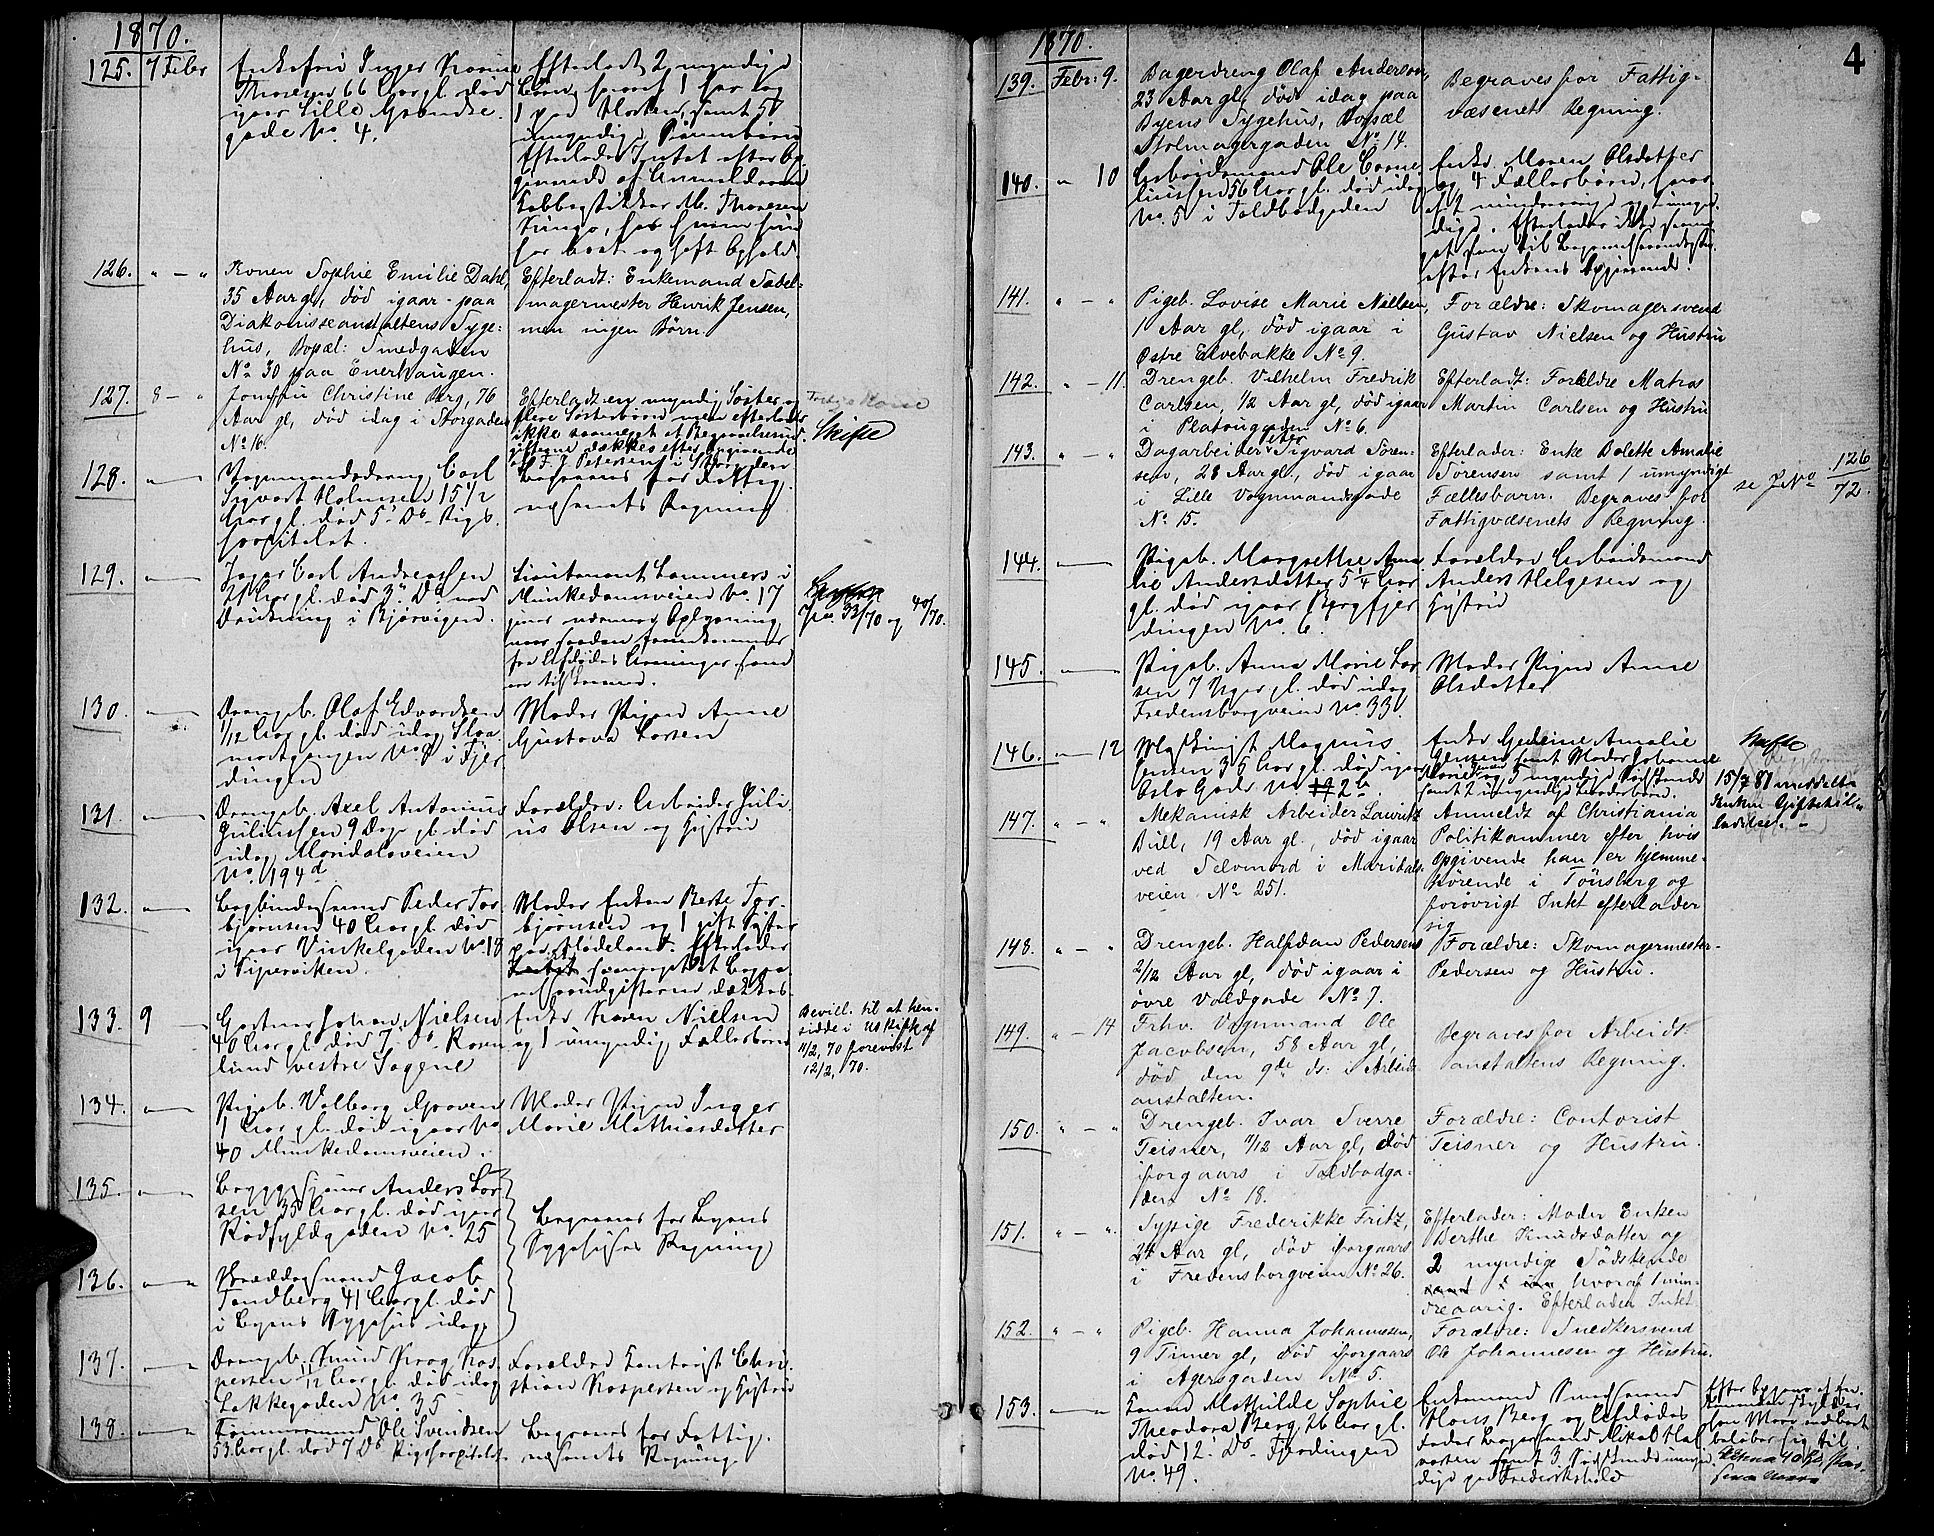 1870.
125. 7 Febr Enkefru Inger
Thoresen 66 Aar gl. død
igaar Lille Grændse-
gade No 4.
Efterladt 2 myndige
Børn, hvoraf 1 her og
1 paa Horten, samt 5
umyndige Børnebørn
Efterlader Intet efter Op-
givende af Anmelderen
Kobberstikker M. Thoresen
126. " — " Konen Sophie Emilie Dahl,
35 Aar gl, død igaar paa
Diakonisseanstaltens Syge-
hus, Bopæl: Smedgaden
No 30 paa Enerhaugen.
Efterladt: Enkemand Sadel-
magermester Henrik Jensen,
men ingen Børn.
127. 8 — " Jomfru Christine Berg, 76
Aar gl, død idag i Storgaden
No 16.
Efterladt en myndig Søster og
flere Søsterbørn men efterlader
ikke saameget at Begravelsesud-
gifterne dækkes efter Opgivende
af F. J. Petersen i Storgaden
Skifte
128. Vognmandsdreng Carl
Sigvart Holmsen 15 1/2
Aar gl. død 5 Ds Rigs-
hospitalet.
Begraves for Fattig-
væsenets Regning
129. Carl Andreassen
21 Aar gl. død 3 Ds ved
Drukning i Bjørvigen.
Lieutenant Lammers i
Munkedamsveien No. 17
giver nærmere Oplysning
naar saadan fremkommer
fra Afdødes Arvinger
33/70 og 40/70.
130. Drengeb. Olaf Edvardsen
1/12 Aar gl. død idag
i Fjer-
dingen
Moder Pigen Anne
Gustava Larsen
131. Drengeb. Axel Antonius
Juliussen 9 Dage gl. død
idag Maridalsveien
No. 194 d
Forældre: Arbeider Juli-
us Olsen og Hustru
132. Bogbindersvend Peder Tor-
bjørnsen 40 Aar gl. død
igaar Vinkelgaden No 18
i Pipervigen.
Moder Enken Berte Tor-
bjørnsen og 1 gift Søster
paa Modeland. Efterlader
saameget at Begra-
velsesudgifterne dækkes
133. 9 Gartner Johan Nielsen
40 Aar gl. død 7 Ds Rosen-
lund vestre Sagene
Enke Karen Nielsen
og 1 umyndig Fællesbarn
Bevill. til at hen-
sidde i uskifte af
11/2, 70 forevist
12/2, 70.
134. Pigeb. Valborg Graven
1 Aar gl. død igaar No
40 Munkedamsveien.
Moder Pigen Inger
Marie Mathiasdatter
135. Anders Lar-
sen 35 Aar gl. død igaar
Rødfyldgaden No. 25
Begraves for Byens
Sygehuses Regning
136. Skræddersvend Jacob
Tandberg 41 Aar gl. død
i Byens Sygehus idag
137. Drengeb. Knud Krog Kas-
persen 1/12 Aar gl. død idag
Lakkegaden No. 35
Forældre Contorist Chri-
stian Kaspersen og Hustru
138. Tømmermand Ole Svendsen
53 Aar gl. død 7 Ds Rigshospitalet
Begraves for Fattig-
væsenets Regning
1870.
4
139. Febr: 9. Bagerdreng Olaf Anderson,
23 Aar gl, død idag paa
Byens Sygehus, Bopæl
Stolmagergaden No 14.
Begraves for Fattig-
væsenets Regning.
140. " 10 Arbeidsmand Ole Corne-
liussen 56 Aar gl. død idag
No. 5 i Toldbodgaden
Enke Maren Olsdatter
og 4 Fællesbørn, hvor-
af
efter Enkens Opgivende.
141. " — " Pigeb. Lovise Marie Nielsen,
1 Aar gl, død igaar i
Østre Elvebakke No 9.
Forældre: Skomagersvend
Gustav Nielsen og Hustru
142. " — 11. Drengeb. Vilhelm Fredrik
Carlsen, 1/2 Aar gl, død igaar
i Platougaden No 6.
Efterladt: Forældre Matros
Martin Carlsen og Hustru
143. " — " Dagarbeider Peter Sigvard Søren-
sen, 28 Aar gl., død igaar
i Lille Vognmandsgade
No 15.
Efterlader: Enke Bolette Amalie
Sørensen samt 1 umyndigt
Fællesbarn. Begraves for
Fattigvæsenets Regning.
se JNo 126/72.
144. Pigeb. Margrethe Ama-
lie Andersdatter 5 1/4 Aar
gl. død igaar Bergfjer-
dingen No. 6.
Forældre Arbeidsmand
Anders Helgesen og
Hustru
145. Pigeb. Anna Marie Lar-
sen 7 Uger gl. død idag
Fredensborgveien No. 33
Moder Pigen Anne
Olsdatter
146. " — 12 Magnus
Jensen 35 Aar gl. død igaar
Oslo Gade No 2 b.
Enke Gedeine Amalie
Jensen samt Moder Johanne
og 5 myndige Sødskende
samt 2 umyndige
Skifte
15/7 81 meddelt
Enken Giftetil-
ladelse. -
147. " — " Mekanisk Arbeider Lauritz
Bull, 19 Aar gl., død igaar
ved Selvmord i Maridals-
veien No 251.
Anmeldt af Christiania
Politikammer efter hvis
Opgivende han er hjemme-
hørende i Tönsberg og
forøvrigt Intet efterlader
sig
148. " — " Drengeb. Halfdan Pedersen
2/12 Aar gl, død igaar i
övre Voldgade No 7.
Forældre: Skomagermester
Pedersen og Hustru.
149. " — 14 Frhv. Vognmand Ole
Jacobsen, 58 Aar gl,
død den 9de ds: i Arbeids-
anstalten.
Begraves for Arbeids-
anstaltens Regning.
150. " — " Drengeb. Ivar Sverre
Teisner, 11/12 Aar gl, død
iforgaars i Toldbodga-
den No 18.
Forældre: Contorist
Teisner og Hustru.
151. " — " Sypige Frederikke Fritz,
24 Aar gl, død iforgaars
i Fredensborgveien No 26.
Efterlader: Moder Enken
Berthe Knudsdatter og
2 myndige Sødskende
hvoraf 1 min-
dreaarig. Efterlader Intet
152. " — " Pigeb. Hanna Johannesen,
9 Timer gl, død iforgaars
i Agersgaden No 5.
Forældre: Snedkersvend
Ole Johannesen og Hustru.
153. Konen Mathilde Sophie
Theodora Berg, 26 Aar gl.
død 12 Ds Fjerdingen
No. 49.
Enkemand
Hans Berg og Afdødes
Fader
samt 3 Sødskende
paa Frederikshald